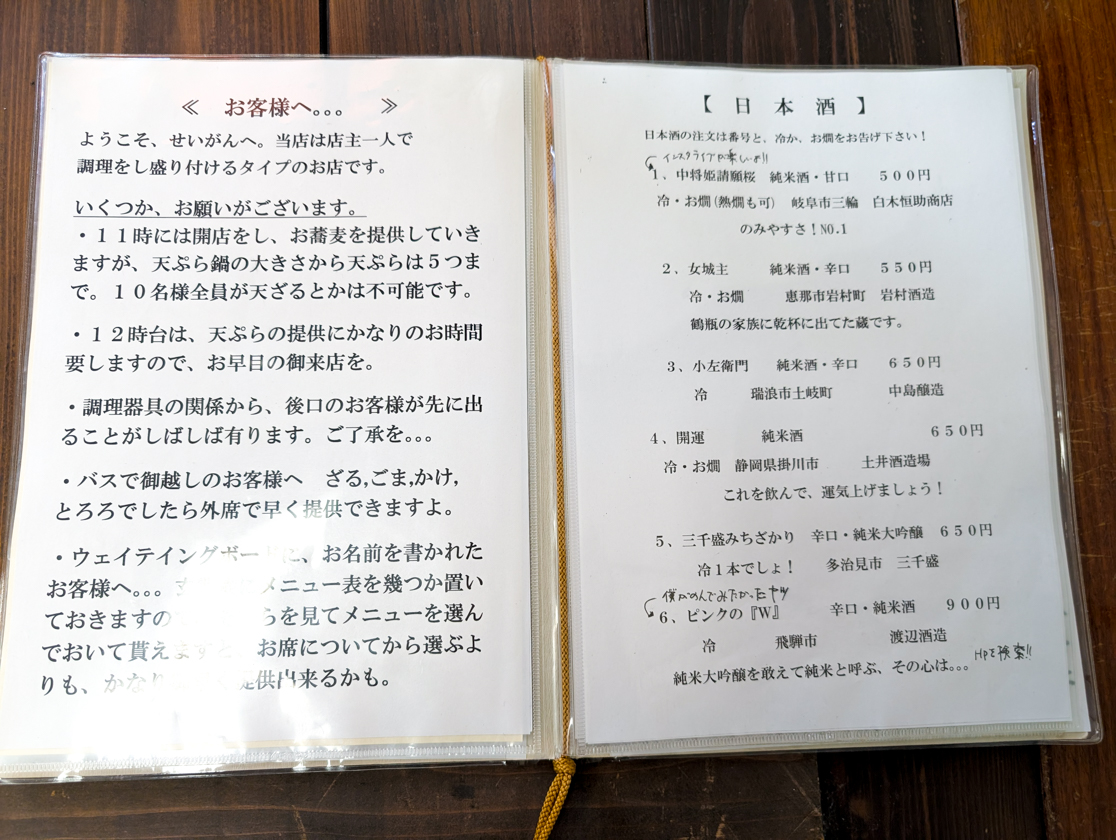 ≪ お客様へ。。。 ≫
ようこそ、せいがんへ。当店は店主一人で
調理をし盛り付けるタイプのお店です。
いくつか、お願いがございます。
・１１時には開店をし、お蕎麦を提供していき
ますが、天ぷら鍋の大きさから天ぷらは５つま
で。１０名様全員が天ざるとかは不可能です。
・１２時台は、天ぷらの提供にかなりのお時間
要しますので、お早目の御来店を。
・調理器具の関係から、後口のお客様が先に出
ることがしばしば有ります。ご了承を。。。
・バスで御越しのお客様へ ざる,ごま,かけ,
とろろでしたら外席で早く提供できますよ。
・ウェイテイングボードに、お名前を書かれた
お客様へ。。。 メニュー表を幾つか置い
ておきますの らを見てメニューを選ん
でおいて貰えます お席についてから選ぶよ
りも、かなり 提供出来るかも。
【 日 本 酒 】
日本酒の注文は番号と、冷か、お燗をお告げ下さい！
インスタライブが楽しいよ!!
１、中将姫請願桜 純米酒・甘口 ５００円
冷・お燗(熱燗も可) 岐阜市三輪 白木恒助商店
のみやすさ！NO.1
２、女城主 純米酒・辛口 ５５０円
冷・お燗 恵那市岩村町 岩村酒造
鶴瓶の家族に乾杯に出てた蔵です。
３、小左衛門 純米酒・辛口 ６５０円
冷 瑞浪市土岐町 中島醸造
４、開運 純米酒 ６５０円
冷・お燗 静岡県掛川市 土井酒造場
これを飲んで、運気上げましょう！
５、三千盛みちざかり 辛口・純米大吟醸 ６５０円
冷１本でしょ！ 多治見市 三千盛
僕がのんでみたかったヤツ
６、ピンクの『W』 辛口・純米酒 ９００円
冷 飛騨市 渡辺酒造
純米大吟醸を敢えて純米と呼ぶ、その心は。。。 HPを検索!!